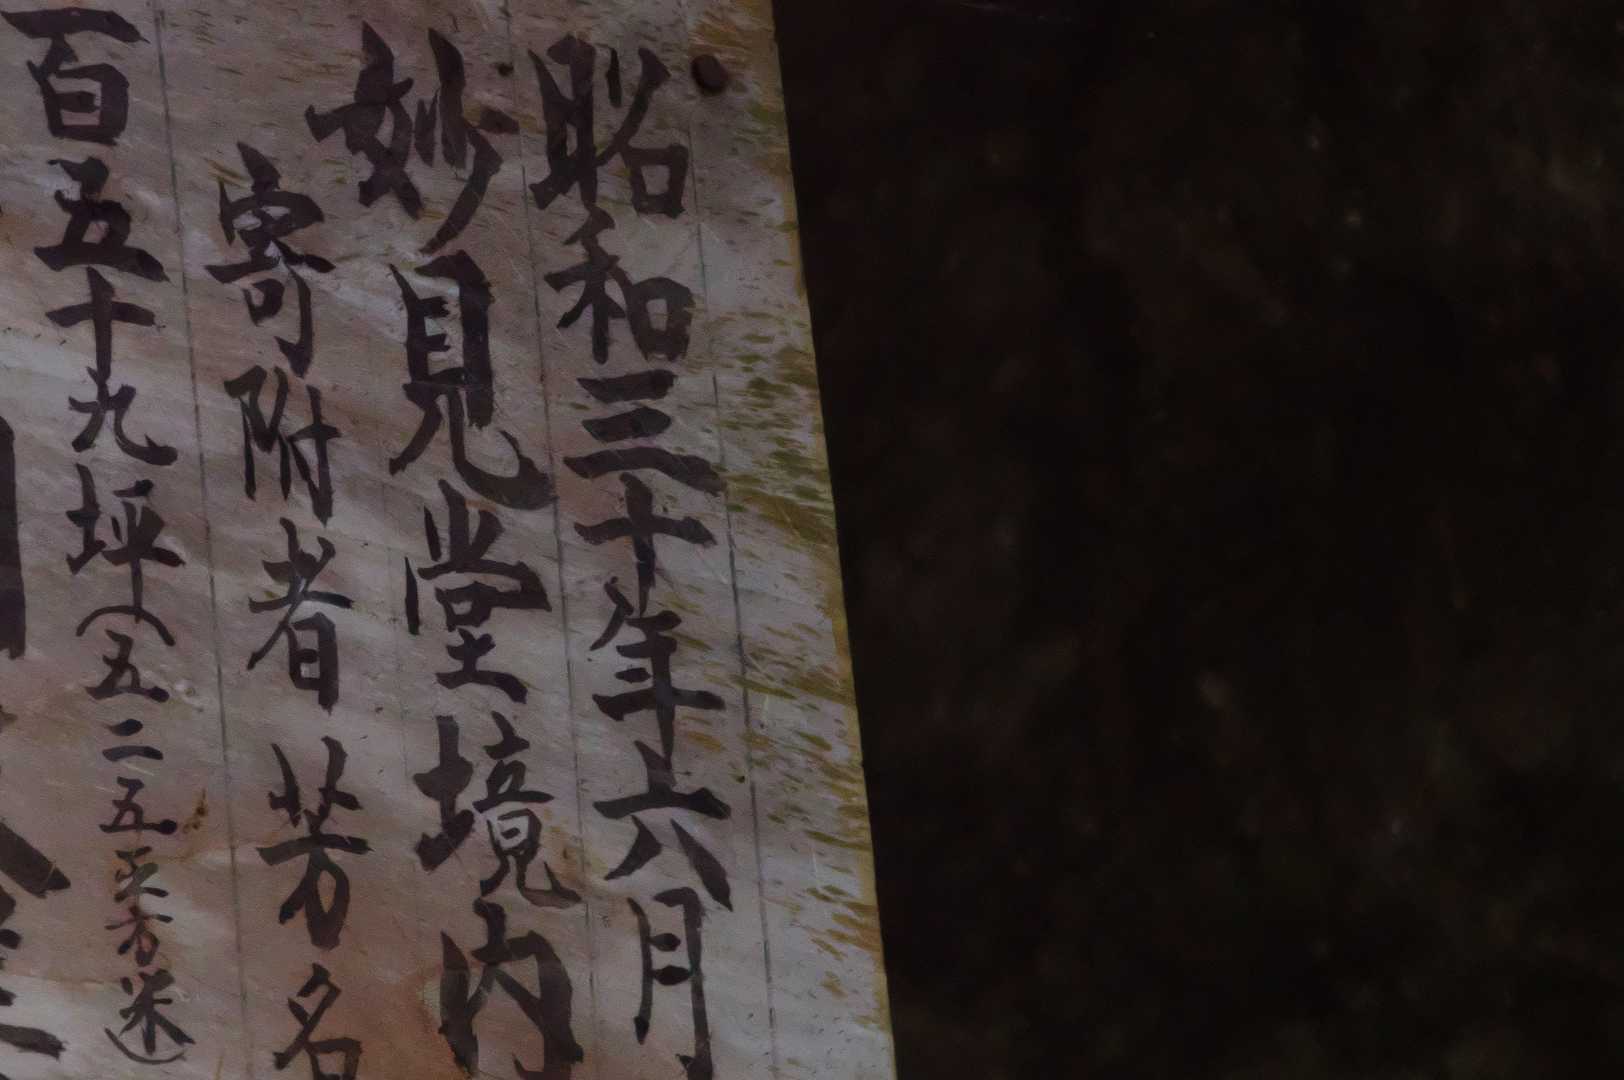 昭和三十年六月
妙見堂境内
寄附者芳名
百五十九坪(五二五平方米)